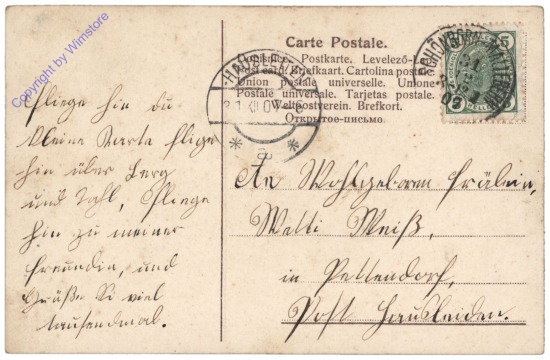 Copyright by Wimstore
Carte Postale.
Postkarte. Levelező-L
Post card. Briefkaart. Cartolina post
Union postale universelle. Unione
Postale universale. Tarjetas postale
Weltpostverein. Brefkort.
Открытое-письмо
5
HELLER
Fliege hin du
kleine Karte flige
hin über Berg
und Tahl, Fliege
hin zu meiner
freundin, und
Grüße Si viel
tausendmal.
An Wohlgeboren Frälein,
Welti Weiß,
in Pettendorf,
Post Hausleiden.